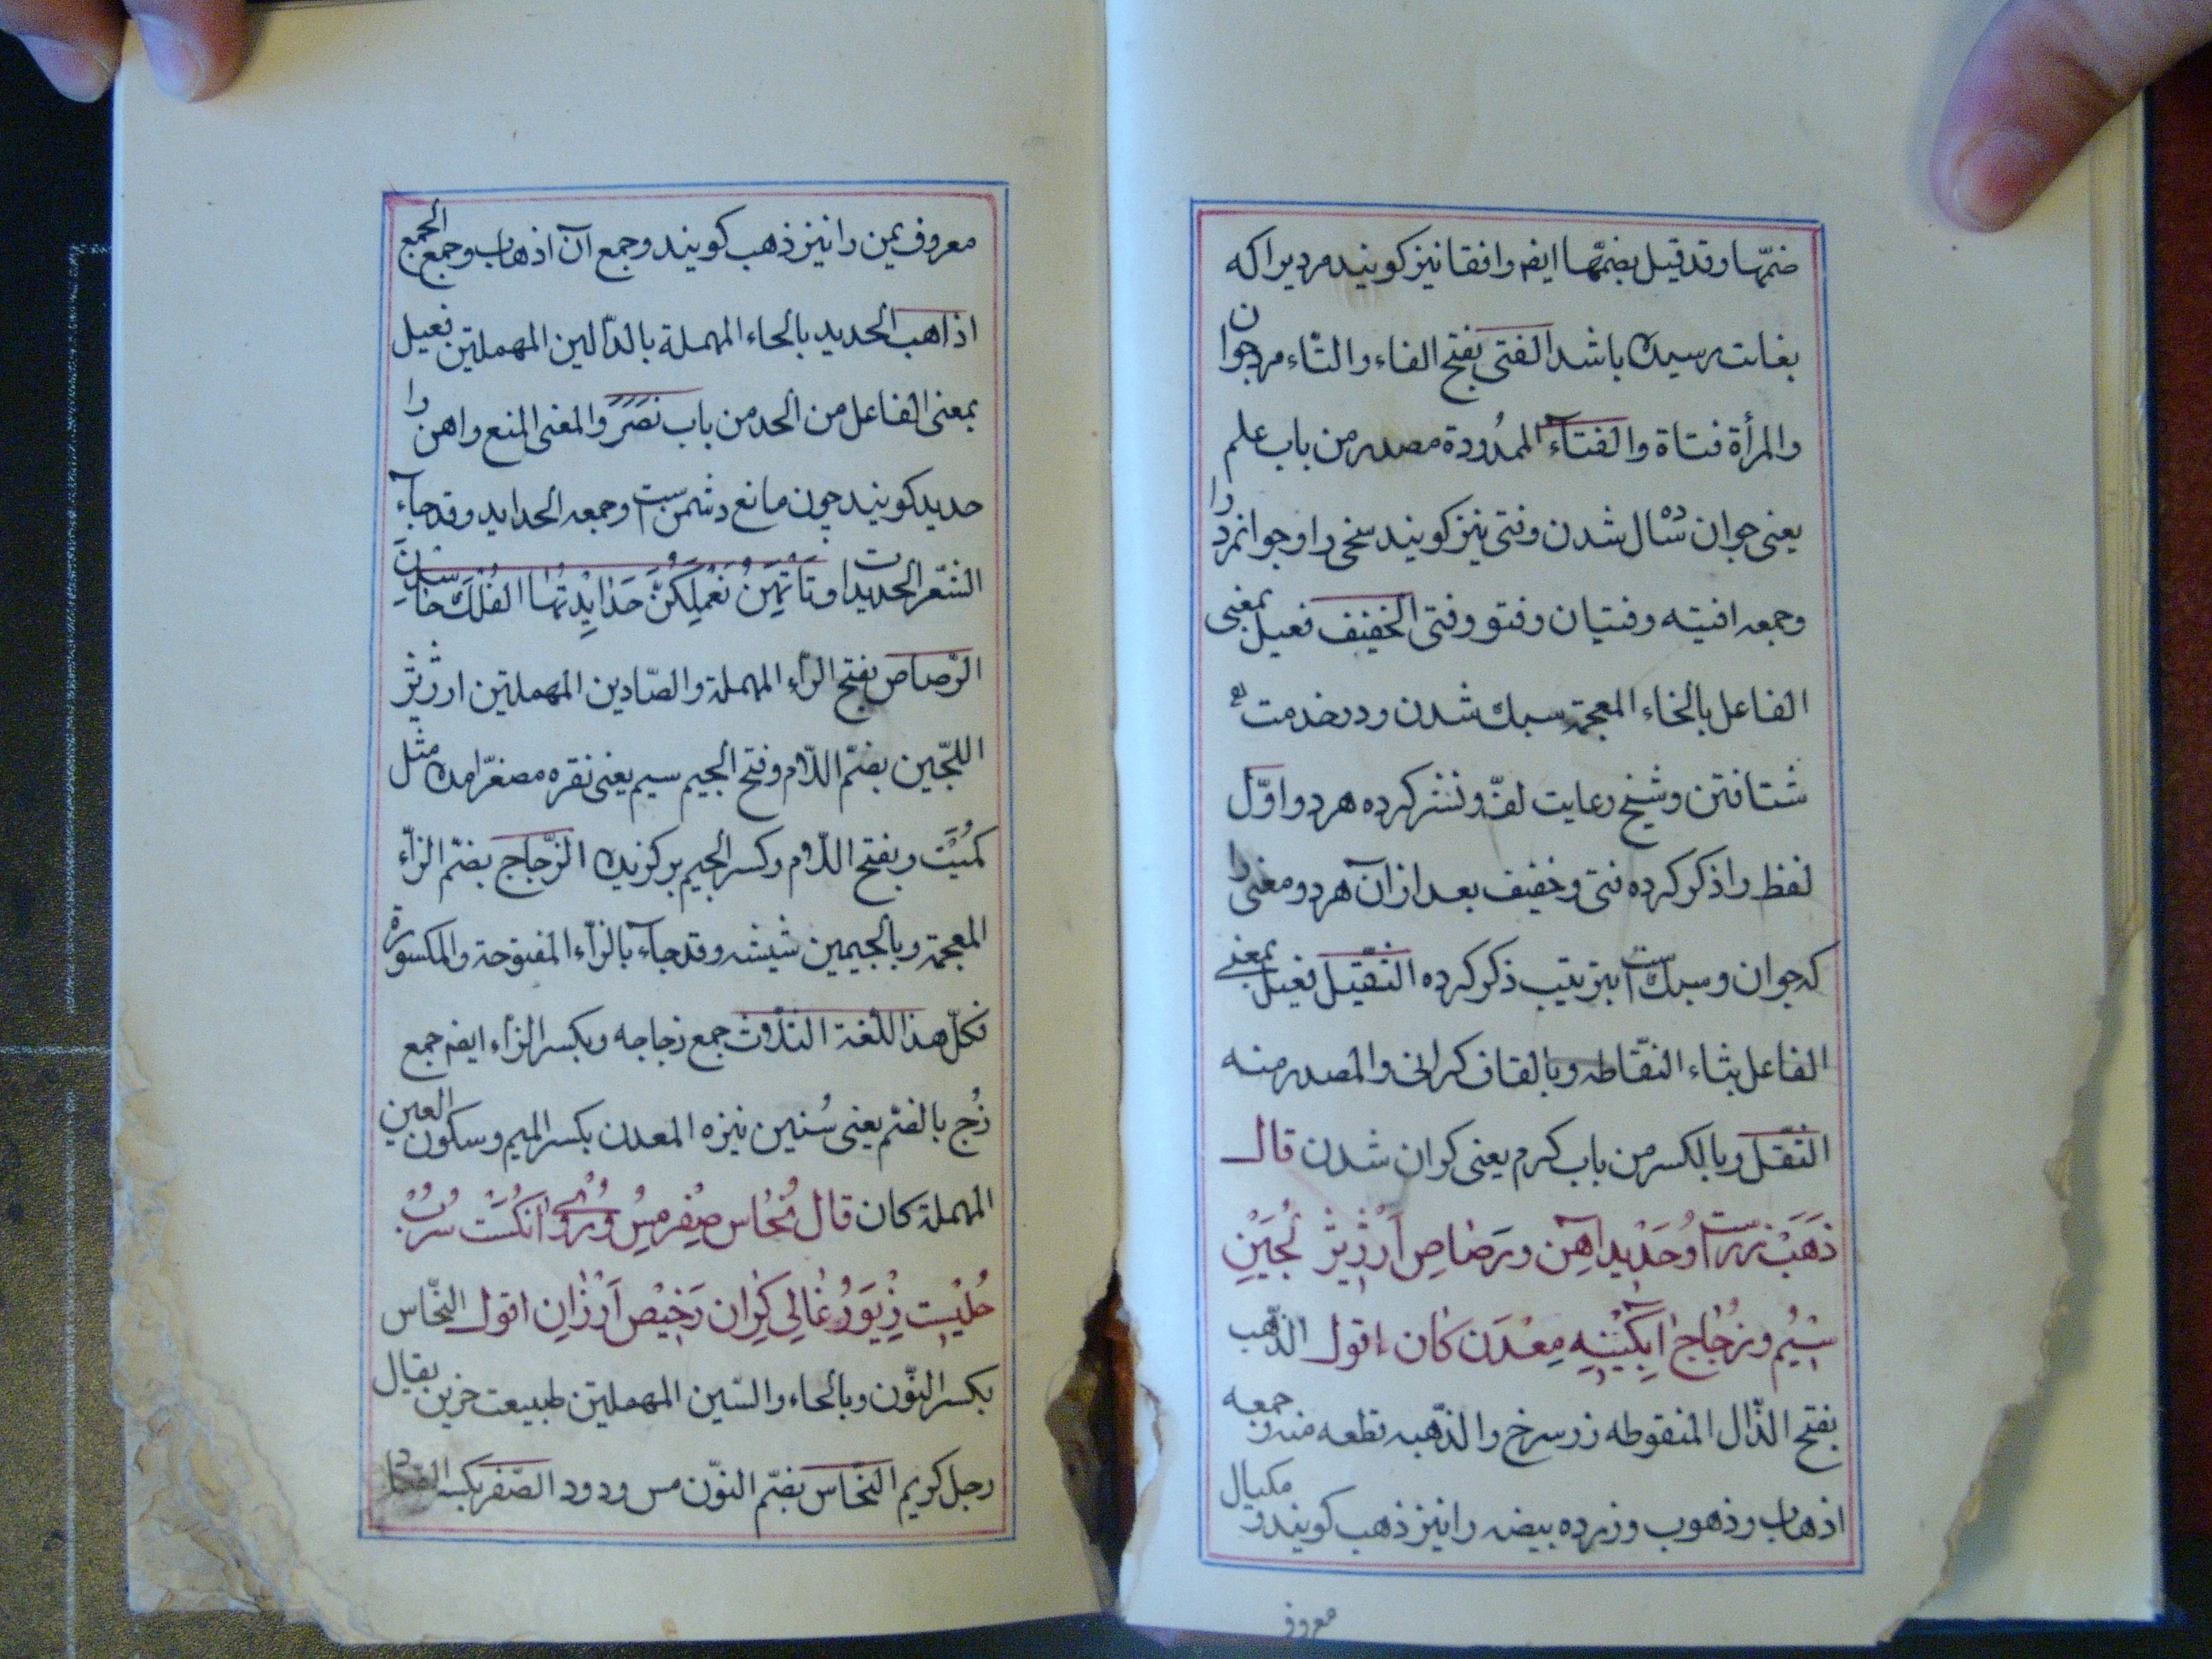 ضمّها وقد قیل بضمّها ایضم وافقا نیز کویند مردیرا که
بغایت رسیده باشد الفتی بفتح الفاء والتّاء مرد جوان
والمرأة فتاة والفتآء الممدُودة مصدر من باب علم
یعنی جوان سٰال شدن وفتی نیز کویند سخی را وجوانمرد را
وجمعه افتیه وفتیان وفتو وفتی الخفیف فعیل بمعنی
الفاعل بالخاء المعجمة سبك شدن ودر خدمت
شتافتن وشیخ رعایت لفّ ونشر کرده هر دو اوّل
لفظ را ذکر کرده فتی وخفیف بعد از آن هر دو معنی را
که جوان وسبك است بترتیب ذکر کرده الثّقیل فعیل بمعنی
الفاعل بثاء النقّاطه وبالقاف کرانی والمصدر منه
الثّقل وبالکسر من باب کرم یعنی کران شدن قال
ذَهَبْ زرست وُحَدْید اهِن ورَصٰاصِ اَرْزِیْزْ لُجَیْنِ
سْیُم وزُجٰاج اٰبِکَیْنِهِ مِعْدَن کٰان اقول الذّهب
بفتح الذّال المنقوطه زر سرخ والذّهبه قطعه منه وجمعه
اذهاب وذهوب وزرده بیضه را نیز ذهب کویند ومکیال
معروف
معروف یمن را نیز ذهب کویند وجمع آن اذهاب وجمع الجمع
اذاهب الحدید بالحاء المهملة بالدّالین المهملتین فعیل
بمعنی الفاعل من الحد من باب نَصَرَ والمعنی المنع واهن را
حدید کویند چون مانع دشمن است وجمعه الحداید وقد جآء
الشّعر الحدیدات
الرّصاص بفتح الرّاء المهملة والصّادین المهملتین ارزیز
اللّجین بضمّ اللّام وفتح الجیم سیم یعنی نقره مصغّر امده مثل
کمُیَتْ وبفتح اللّام وکسر الجیم برکزیده الزّجاج بضمّ الزآء
المعجمة وبالجیمین شیشه وقد جآء بالزآء المفتوحة والمکسورة
فکلّ هذا اللّغة الثلاث جمع زجاجه وبکسر الزاء ایضم جمع
زُج بالضّم یعنی سُنین نیزه المعدن بکسر المیم وسکون العین
المهملة کان قال نُحٰاس صِفْر مِسْ وُرُویْ اَنکُشْت سُرُبْ
حُلیْسِت زِیْوَرُ غٰالِی کِرٰان رَخِیْصْ اَرْزٰانِ اقول النّحاس
بکسر النوّن وبالحاء والسّین المهملتین طبیعت خزین یقال
رجل کریم النّحاس بضمّ النوّن مس ودود الصّفر بکسر الصّاد